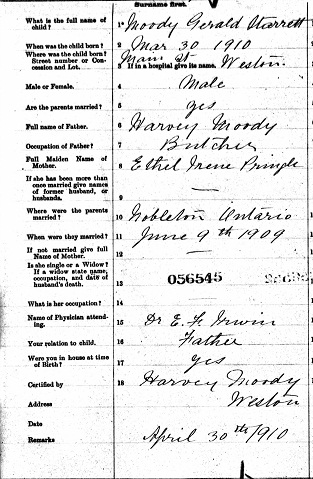 Surname first.
What is the full name of child? 1 Moody Gerald Starrett
When was the child born? 2 Mar 30 1910
Where was the child born? Street number or Concession and Lot. 3 Main St
If in a hospital give its name. Weston
Male or Female. 4 Male
Are the parents married? 5 yes
Full name of Father. 6 Harvey Moody
Occupation of Father? 7 Butcher
Full Maiden Name of Mother. 8 Ethel Irene Pringle
If she has been more than once married give names of former husband, or husbands. 9 —
Where were the parents married? 10 Nobleton Ontario
When were they married? 11 June 9th 1909
If not married give full Name of Mother. 12 —
Is she single or a Widow? If a widow state name, occupation, and date of husband's death. 13
056545
What is her occupation? 14
Name of Physician attending. 15 Dr E. F. Irwin
Your relation to child. 16 Father
Were you in house at time of Birth? 17 yes
Certified by 18 Harvey Moody
Address Weston
Date
Remarks April 30th/1910